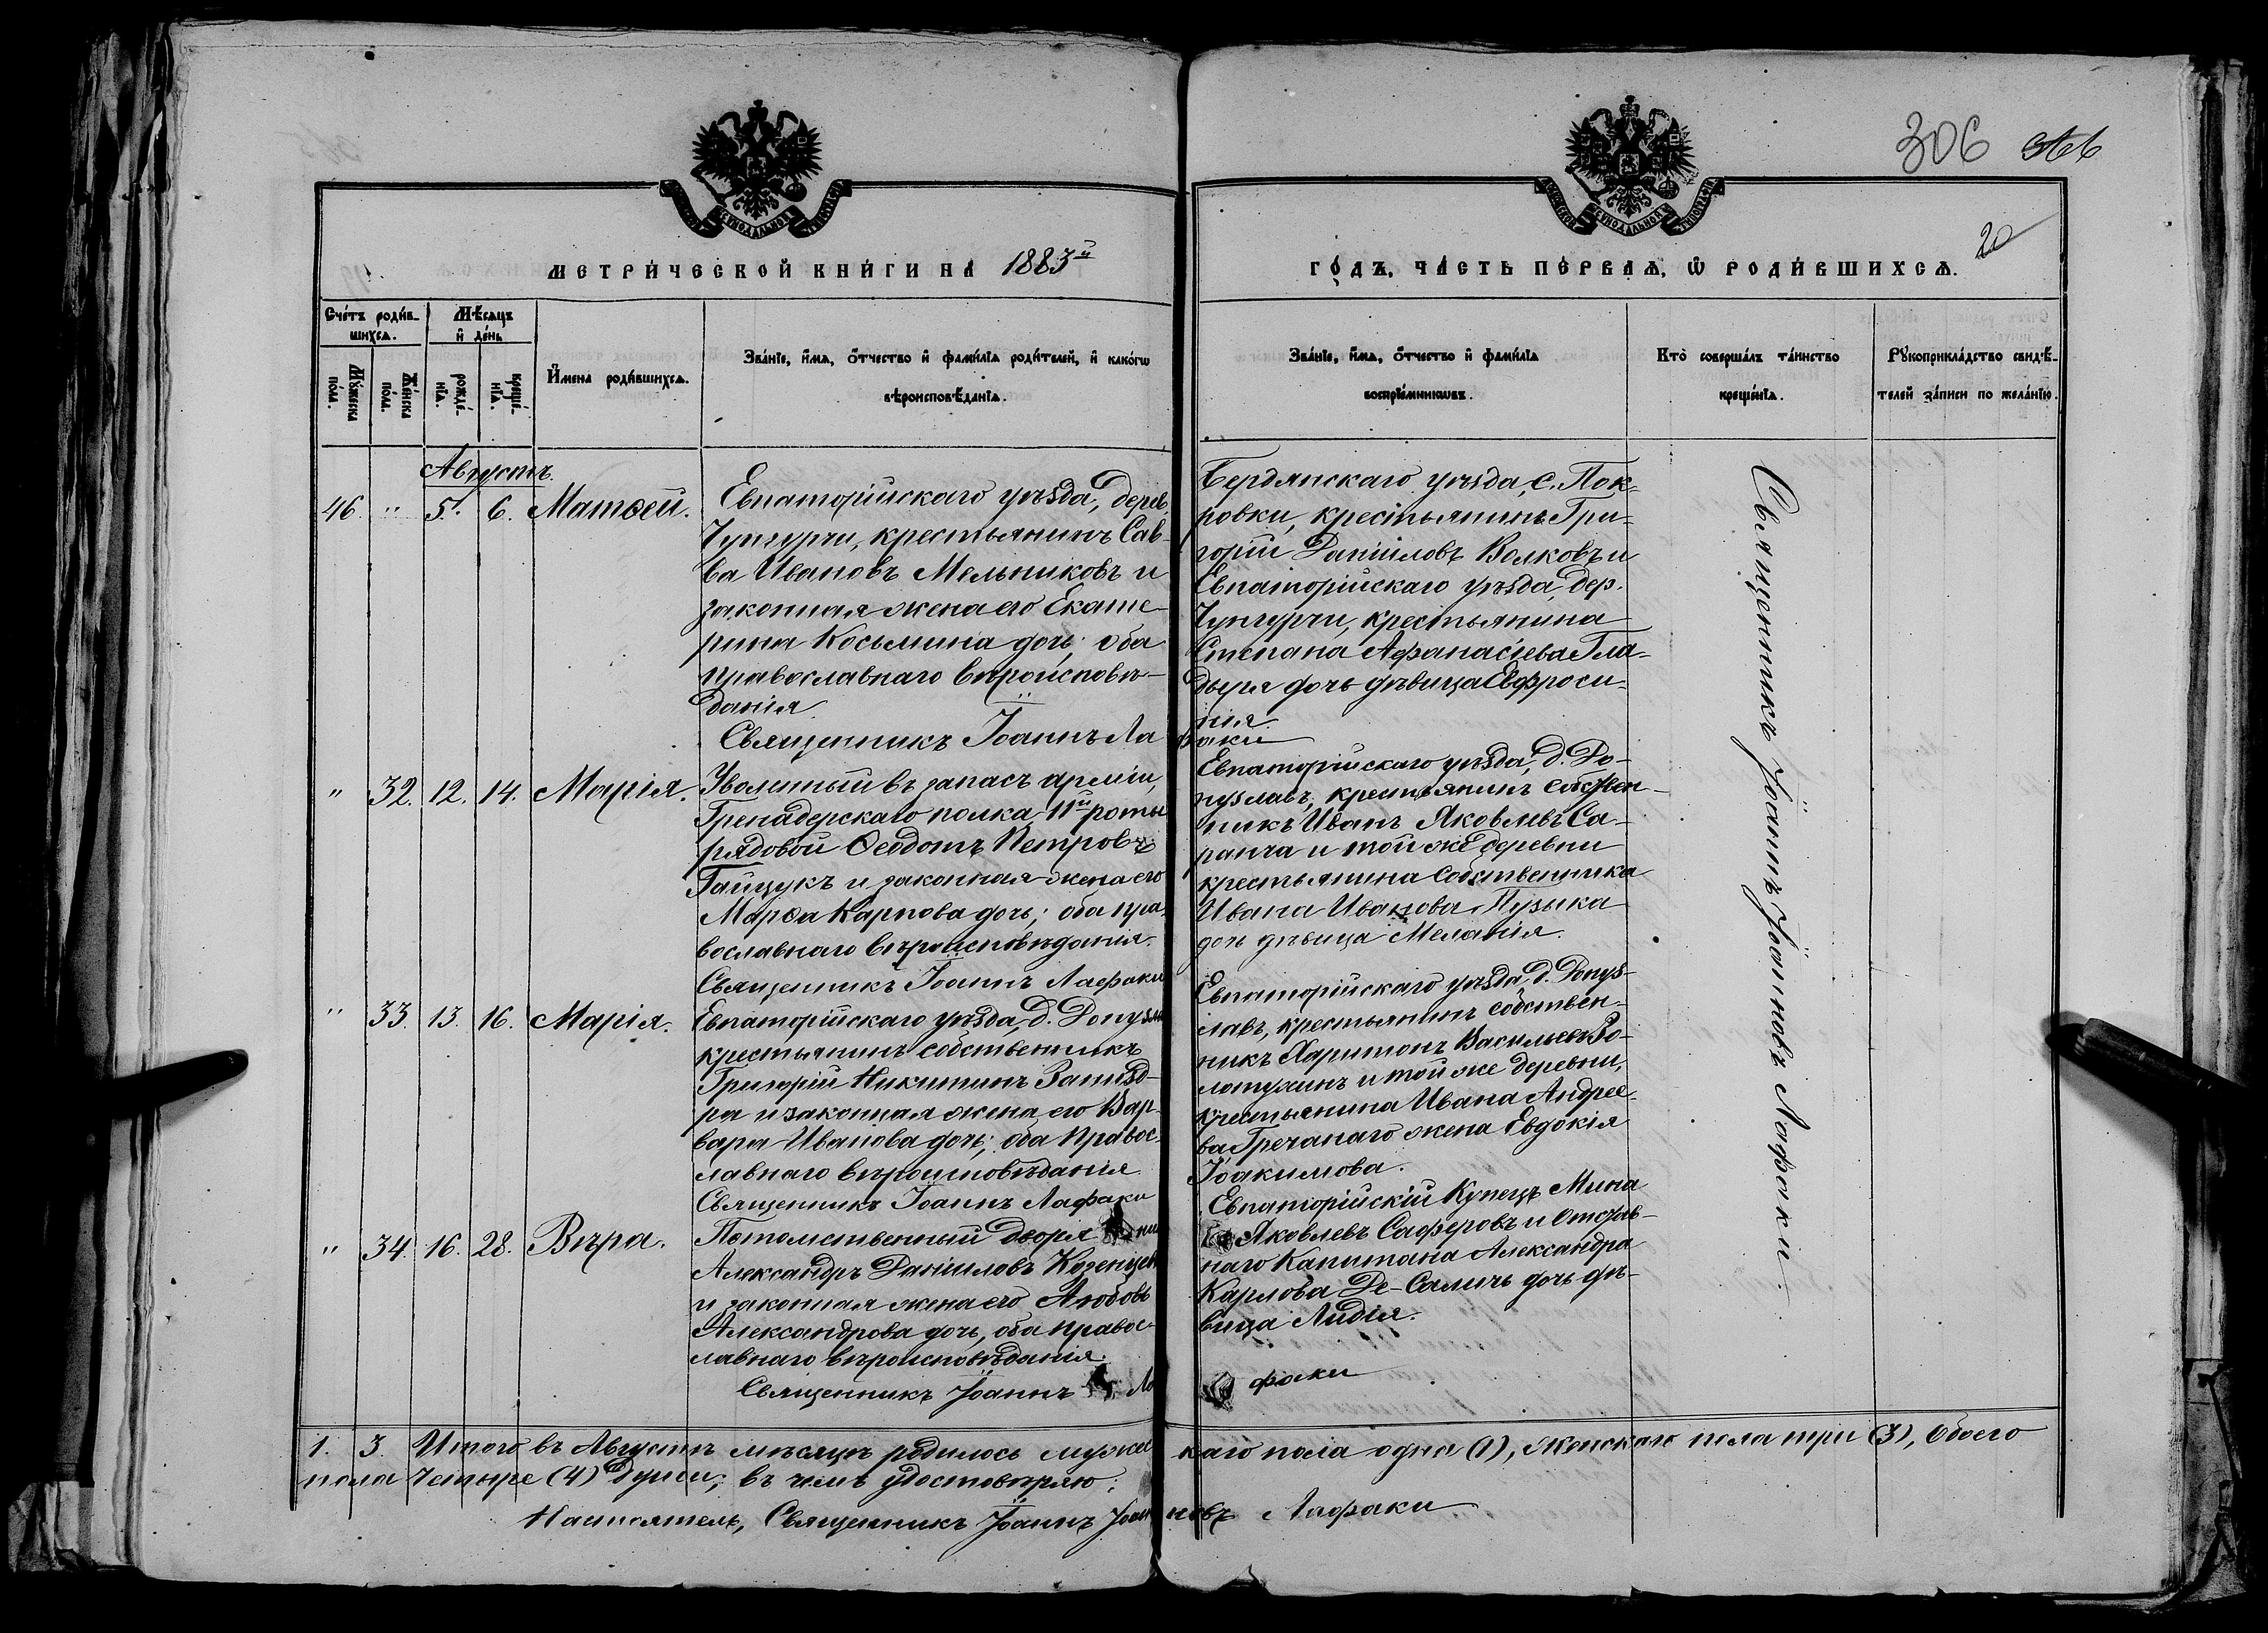 306
20
МЕТРИ́ЧЕСКОЙ КНИ́ГИ НА 1883й
ГО́ДЪ, ЧА́СТЬ ПЕ́РВАѦ, Ѡ РОДИ́ВШИХСѦ.
Сче́тъ роди́в-
шихсѧ.
Мѣ́сѧцъ
и҆ де́нь
Мꙋ́жеска
по́ла.
Же́нска
по́ла.
рожде́-
нїѧ.
креще́-
нїѧ.
И҆мена роди́вшихсѧ.
Зва́нїе, и҆́мѧ, ѻ҆́тчество и҆ фами́лїѧ роди́телей, и҆ како́гѡ
вѣроисповѣ́данїѧ.
Зва́нїе, и҆́мѧ, ѻ҆́тчество и҆ фами́лїѧ
воспрїе́мникѡвъ.
Кто̀ соверша́лъ та́инство
креще́нїѧ.
Рꙋкоприкла́дство свидѣ́-
телей за́писи по жела́нїю.
Августъ.
46. " 5. 6. Матѳей.
Евпаторійскаго уѣзда, дерев.
Чунгурчи, крестьянинъ Сав-
ва Ивановъ Мельниковъ и
законная жена его Екате-
рина Косьмина дочь; оба
православнаго вѣроисповѣ-
данія.
Священникъ Іоаннъ Лафаки
Бердянскаго уѣзда, с. Пок-
ровки, крестьянинъ Гри-
горій Даніиловъ Волковъ и
Евпаторійскаго уѣзда, дер.
Чунгурчи, крестьянина
Степана Афанасіева Гла-
дыря дочь дѣвица Евфроси-
нія
" 32. 12. 14. Марія.
Уволенный въ запасъ арміи,
Гренадерскаго полка 11й роты
рядовой Ѳеодотъ Петровъ
Гайцукъ и законная жена его
Марѳа Карпова дочь; оба пра-
вославнаго вѣроисповѣданія.
Священникъ Іоаннъ Лафаки
Евпаторійскаго уѣзда, д. До-
нузлавъ, крестьянинъ собствен-
никъ Иванъ Яковлевъ Са-
ранча и той же деревни
крестьянина собственника
Ивана Иванова Пузыка
дочь дѣвица Меланія.
" 33. 13. 16. Марія.
Евпаторійскаго уѣзда, д. Донузлав
крестьянинъ собственникъ
Григорій Никитинъ
и законная жена его Вар-
вара Иванова дочь; оба правос-
лавнаго вѣроисповѣданія
Священникъ Іоаннъ Лафаки
Евпаторійскаго уѣзда, д. Донуз-
лавъ, крестьянинъ собствен-
никъ Харитонъ Васильевъ Зо-
лотухинъ и той же деревни,
крестьянина Ивана Андрее-
ва Гречанаго жена Евдокія
Іоакимова.
" 34. 16. 28. Вѣра.
Потомственный дворянин
Александръ Даніиловъ
и законная жена его Любовь
Александрова дочь, оба правос-
лавнаго вѣроисповѣданія.
Священникъ Іоаннъ Лафаки
Евпаторійскій Купецъ Мина
Яковлевъ Саферовъ и Отстав-
наго Капитана Александра
Карлова Де-Салисъ дочь дѣ-
вица Лидія.
Священникъ Іоаннъ Іоанновъ Лафаки
1. 3. Итого въ Августѣ мѣсяцѣ родилось мужескаго пола одна (1), Женскаго пола три (3), Обоего
пола Четыре (4) Души; въ чемъ удостовѣряю:
Настоятель, Священникъ Іоаннъ Іоанновъ Лафаки